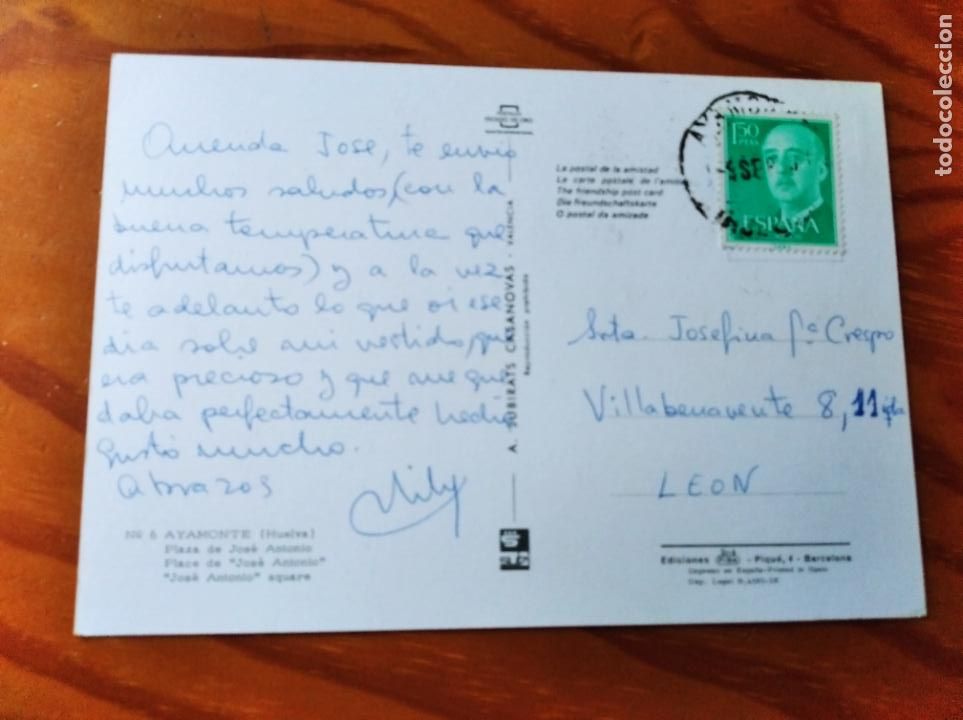 Querida Jose, te envio
muchos saludos (con la
buena temperatura que
disfrutamos) y a la vez
te adelanto lo que oi ese
dia sobre mi vestido, que
era precioso y que me que
daba perfectamente
gustó mucho.
Abrazos
Nº 6 AYAMONTE (Huelva)
Plaza de José Antonio
Place de "José Antonio"
"José Antonio" square
A. SUBIRATS CASANOVAS - VALENCIA
Reproducción prohibida
La postal de la amistad
La carte postale de l'amitié
The friendship post card
Die freundschaftskarte
O postal da amizade
1,50
PTAS
ESPAÑA
Srta. Josefina Fª Crespo
Villabenavente 8, 11
LEON
Ediciones - Piqué, 4 - Barcelona
Impreso en España-Printed in Spain
Dep. Legal B.
todocoleccion